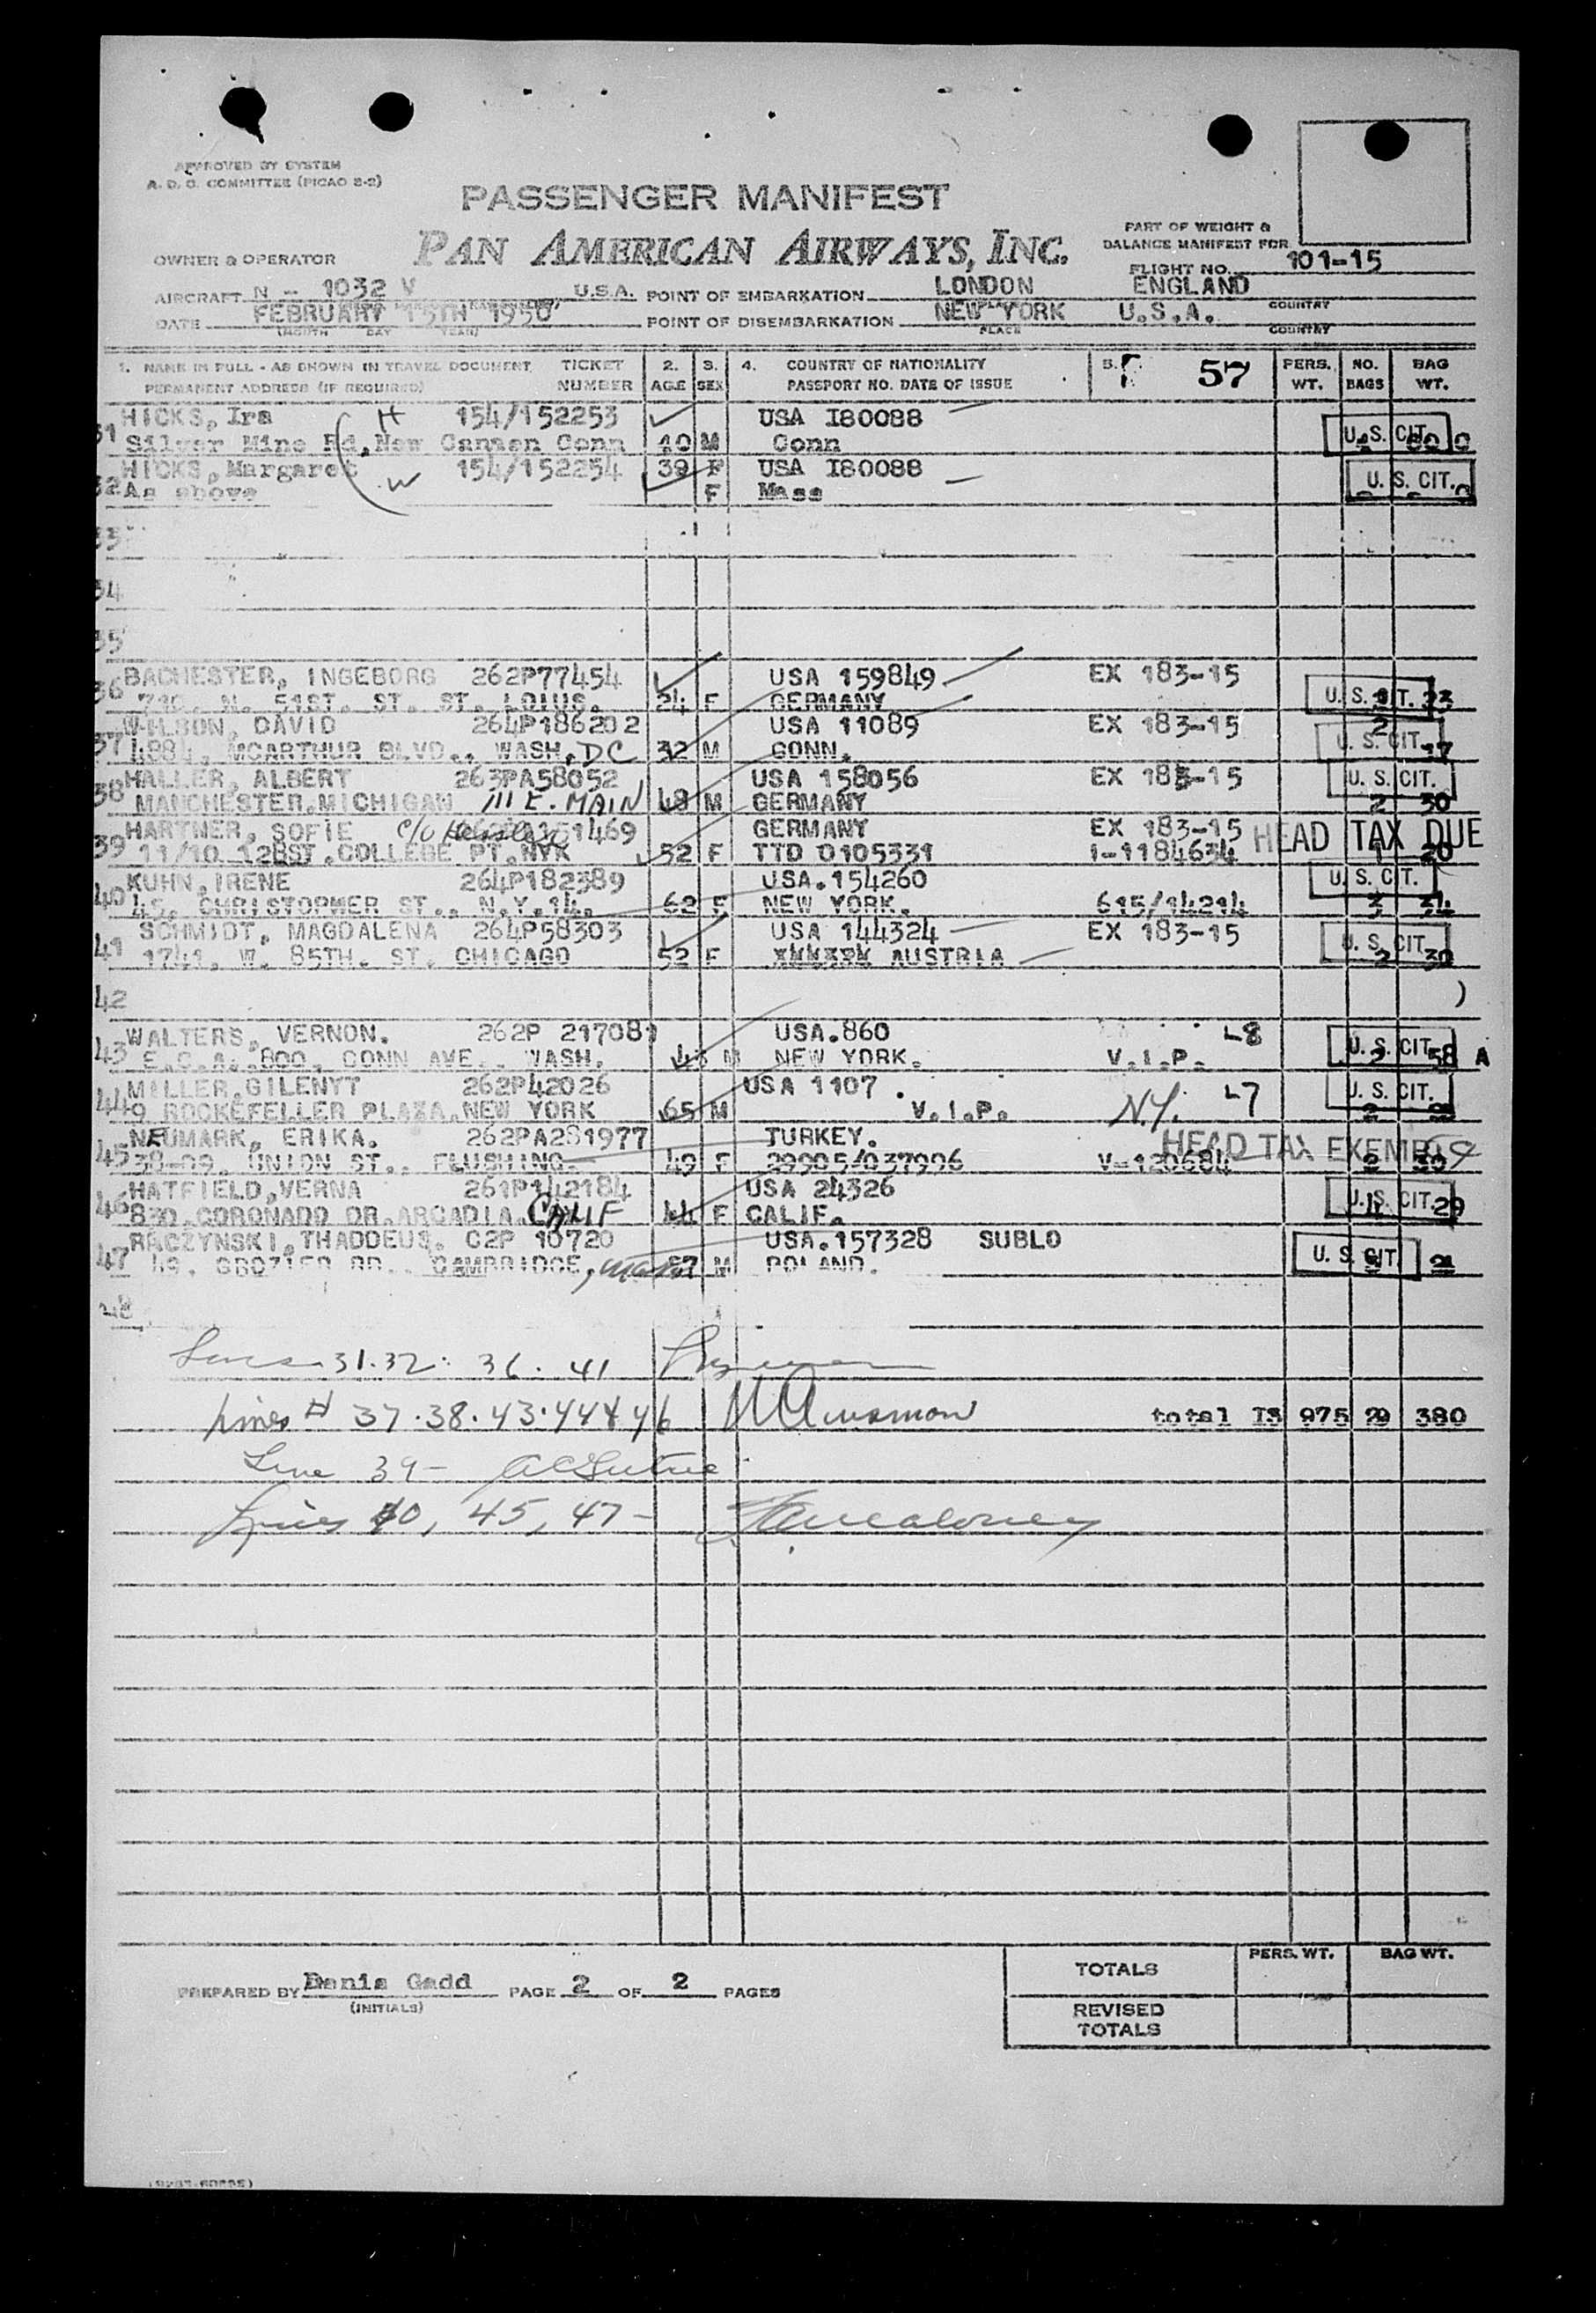 APPROVED BY SYSTEM
A. D. C. COMMITTEE (PICAO 2-2)
PASSENGER MANIFEST
PAN AMERICAN AIRWAYS, INC.
PART OF WEIGHT &
BALANCE MANIFEST FOR
FLIGHT NO. 101-15
OWNER & OPERATOR
AIRCRAFT N - 1032 V U.S.A. POINT OF EMBARKATION LONDON ENGLAND
PLACE COUNTRY
DATE FEBRUARY 15TH 1950 POINT OF DISEMBARKATION NEW YORK U.S.A.
(MONTH DAY YEAR) PLACE COUNTRY
1. NAME IN FULL - AS SHOWN IN TRAVEL DOCUMENT TICKET 2. 3. 4. COUNTRY OF NATIONALITY 5. 57 PERS. NO. BAG
PERMANENT ADDRESS (IF REQUIRED) NUMBER AGE SEX PASSPORT NO. DATE OF ISSUE WT. BAGS WT.
HICKS, Ira H 154/152253 USA I80088
31 Silver Mine Rd, New Canaan Conn 40 M Conn U. S. CIT.
HICKS, Margaret 154/152254 39 F USA I80088
32 As above W F Mass U. S. CIT.
33
34
35
BACHESTER, INGEBORG 262P77454 USA 159849 EX 183-15
36 710. N. 51ST. ST. ST. LOIUS. 24 F GERMANY U. S. CIT. 23
WILSON, DAVID 264P186202 USA 11089 EX 183-15 2
37 4884, MCARTHUR BLVD., WASH. DC 32 M CONN. U. S. CIT. 17
HALLER, ALBERT 263PA58052 USA 158056 EX 183-15 U. S. CIT.
38 MANCHESTER, MICHIGAN 111 E. MAIN 48 M GERMANY 2 30
HARTNER, SOFIE c/o 151469 GERMANY EX 183-15 HEAD TAX DUE
39 11/10 128ST. COLLEGE PT. NYK 52 F TTD 0105331 1-1184634 1 20
KUHN, IRENE 264P182389 USA. 154260 U. S. CIT.
40 45, CHRISTOPMER ST., N.Y.14. 62 F NEW YORK. 615/14214 3 34
SCHMIDT, MAGDALENA 264P58303 USA 144324 EX 183-15
41 1741, W. 85TH. ST. CHICAGO 52 F AUSTRIA U. S. CIT. 2 30
42 )
WALTERS, VERNON. 262P 217081 USA.860 L-8
43 E.C.A. 800, CONN AVE. WASH. 43 M NEW YORK. V.I.P. U. S. CIT. 2 58 A
MILLER, GILENYT 262P42026 USA 1107 L-7 U. S. CIT.
44 9 ROCKEFELLER PLAZA, NEW YORK 65 M V.I.P. N.Y. 2
NEUMARK, ERIKA. 262PA281977 TURKEY. HEAD TAX EXEMPT
45 38-09, UNION ST., FLUSHING. 49 F 29905/037996 V-120684 2 30
HATFIELD, VERNA 261P142184 USA 24326
46 830, CORONADO DR. ARCADIA. CALIF 44 F CALIF. U. S. CIT. 29
RACZYNSKI, THADDEUS. C2P 10720 USA. 157328 SUBLO
47 49. GROZIER RD. CAMBRIDGE, Mass 57 M POLAND. U. S. CIT. 21
48
Lines 31. 32. 36. 41
Lines # 37. 38. 43. 44 & 46 total 13 975 29 380
Line 39-
Lines 40, 45, 47-
PREPARED BY Denis Gadd PAGE 2 OF 2 PAGES
(INITIALS)
PERS. WT. BAG WT.
TOTALS
REVISED
TOTALS